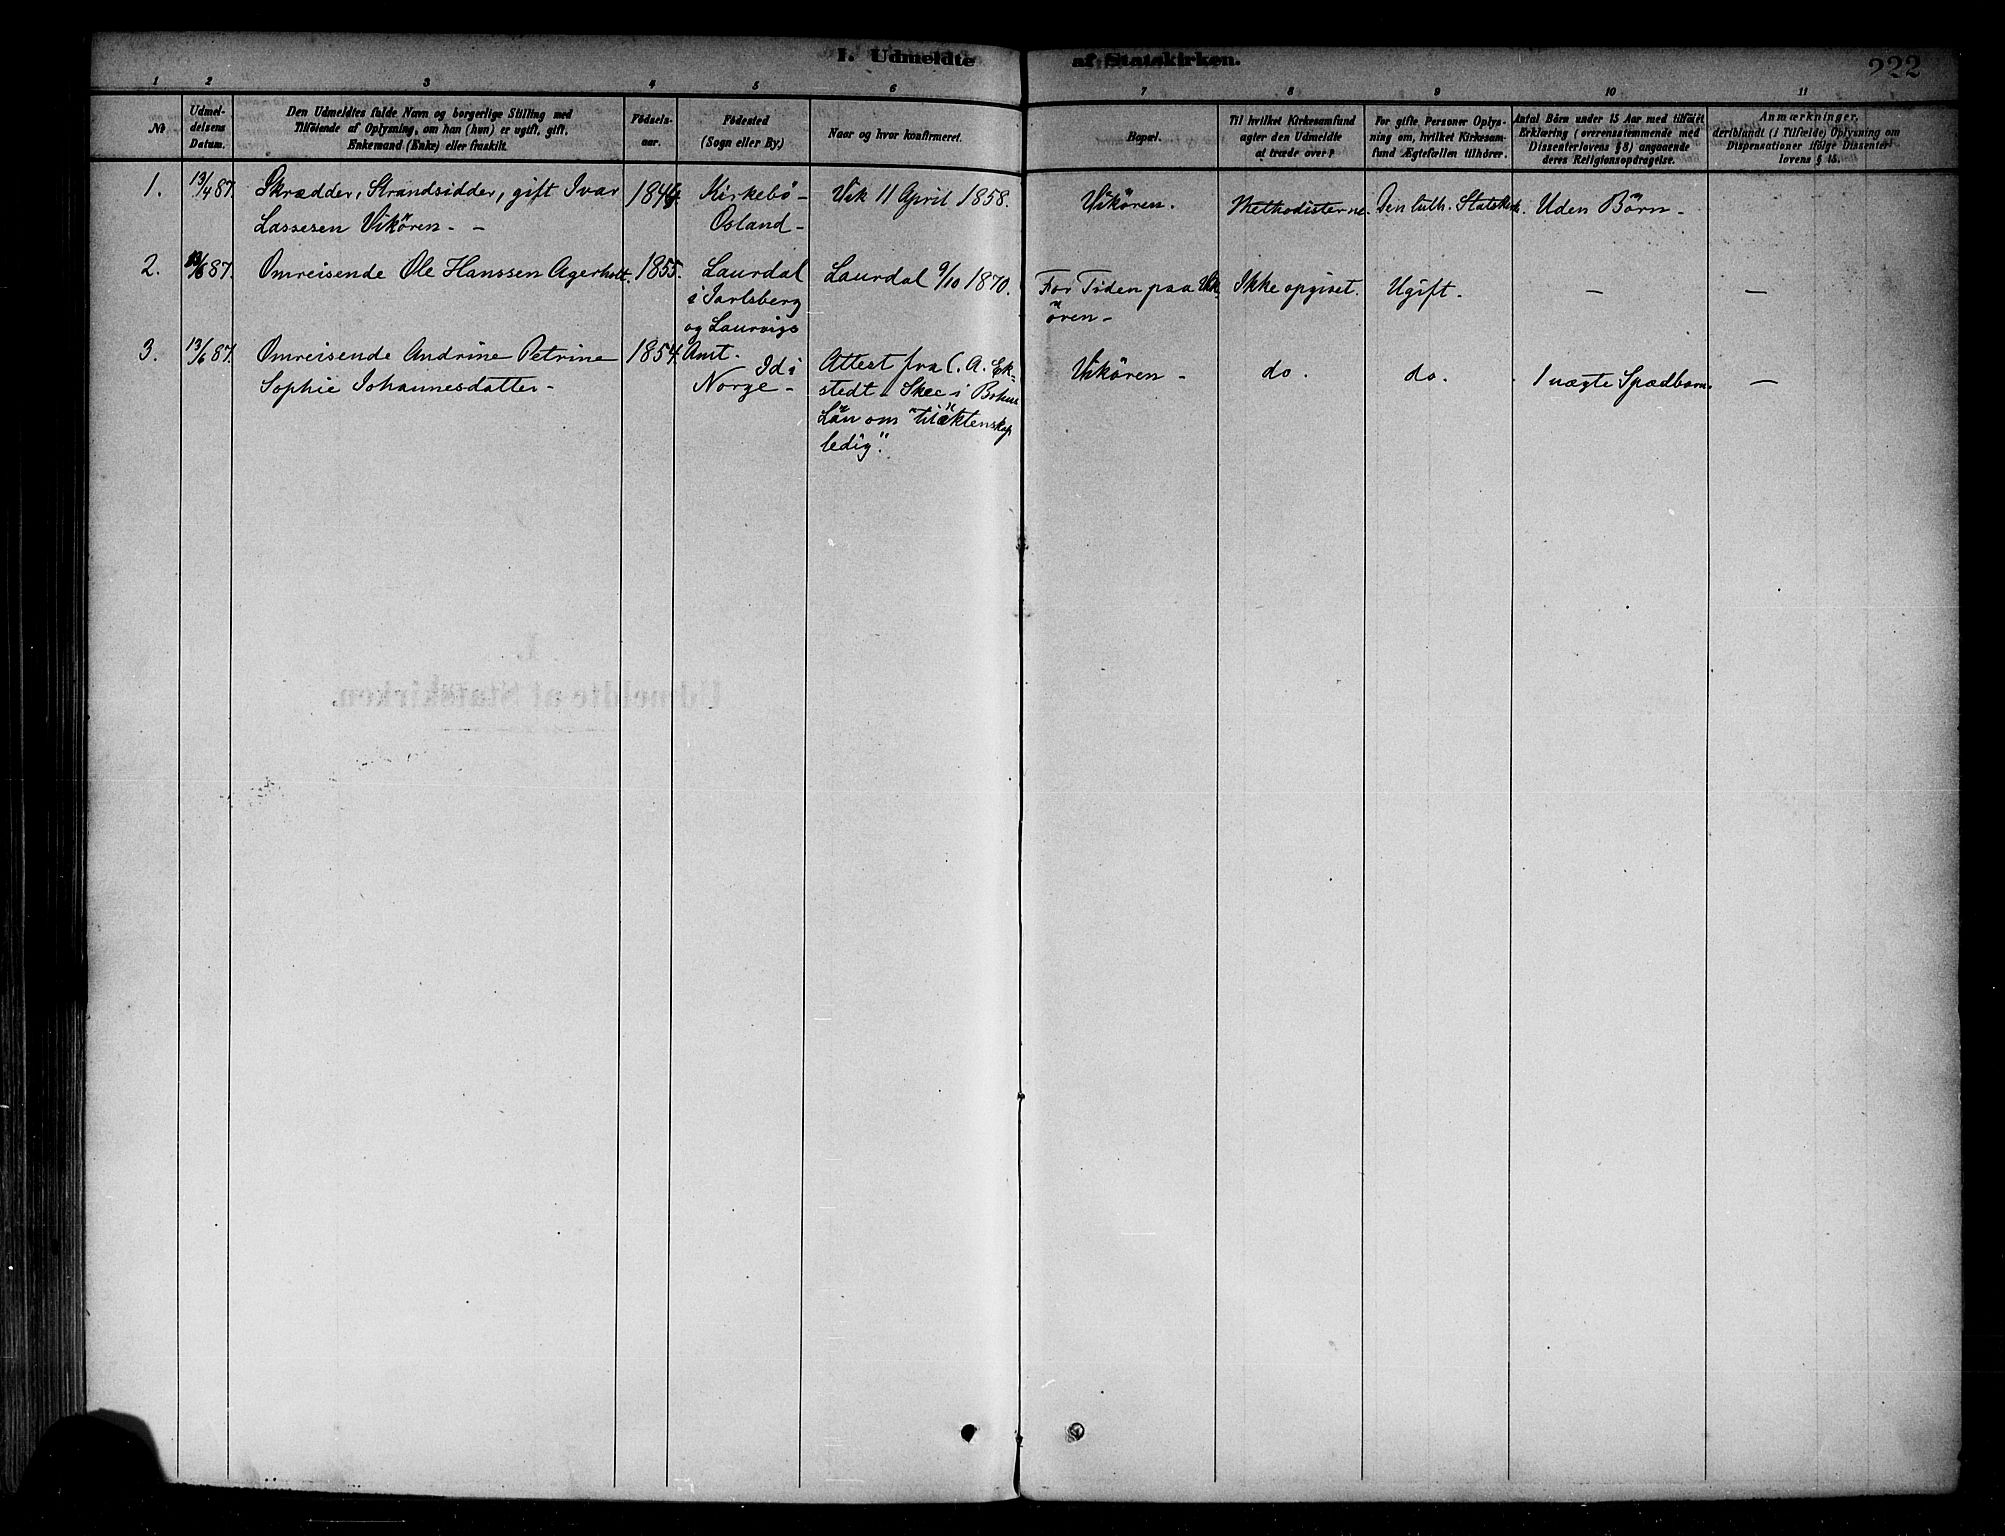 I. Udmeldte af Statskirken. 222
1 2 3 4 5 6 7 8 9 10 11
№
Udmel-
delsens
Datum.
Den Udmeldtes fulde Navn og borgerlige Stilling med
Tilføiende af Oplysning, om han (hun) er ugift, gift,
Enkemand (Enke) eller fraskilt.
Fødsels-
aar.
Fødested
(Sogn eller By.)
Naar og hvor konfirmeret.
Bopæl.
Til hvilket Kirkesamfund
agter den Udmeldte
at træde over?
For gifte Personer Oplys-
ning om, hvilket Kirkesam-
fund Ægtefællen tilhører.
Antal Børn under 15 Aar med tilføiet
Erklæring (overensstemmende med
Dissenterlovens § 8) angaaende
deres Religionsopdragelse.
Anmærkninger,
deriblandt (i Tilfælde) Oplysning om
Dispensationer ifølge Dissenter-
lovens § 15.
1. 13/4 87. Skrædder, Strandsidder, gift Ivar
Lassesen Vikören. -
Kirkebö -
Osland -
Vik 11 April 1858.
Vikören.
Methodisterne.
Den luth. Statskirk.
Uden Börn -
2. 13/6 87. Omreisende Ole Hanssen Agerholt. 1855.
Laurdal
i Jarlsberg
og Laurvigs
Amt.
Laurdal 9/10 1870.
For Tiden paa Vik-
ören -
Ikke opgivet.
Ugift.
—
—
3. 13/6 87. Omreisende Andrine Petrine
Sophie Johannesdatter -
1854.
Id i
Norge -
Attest fra C. A. Ek-
stedt i Skee i Bohus
Län om "til äktenskap
ledig".
Vikören -
do.
do.
1 uægte Spædbarn.
—